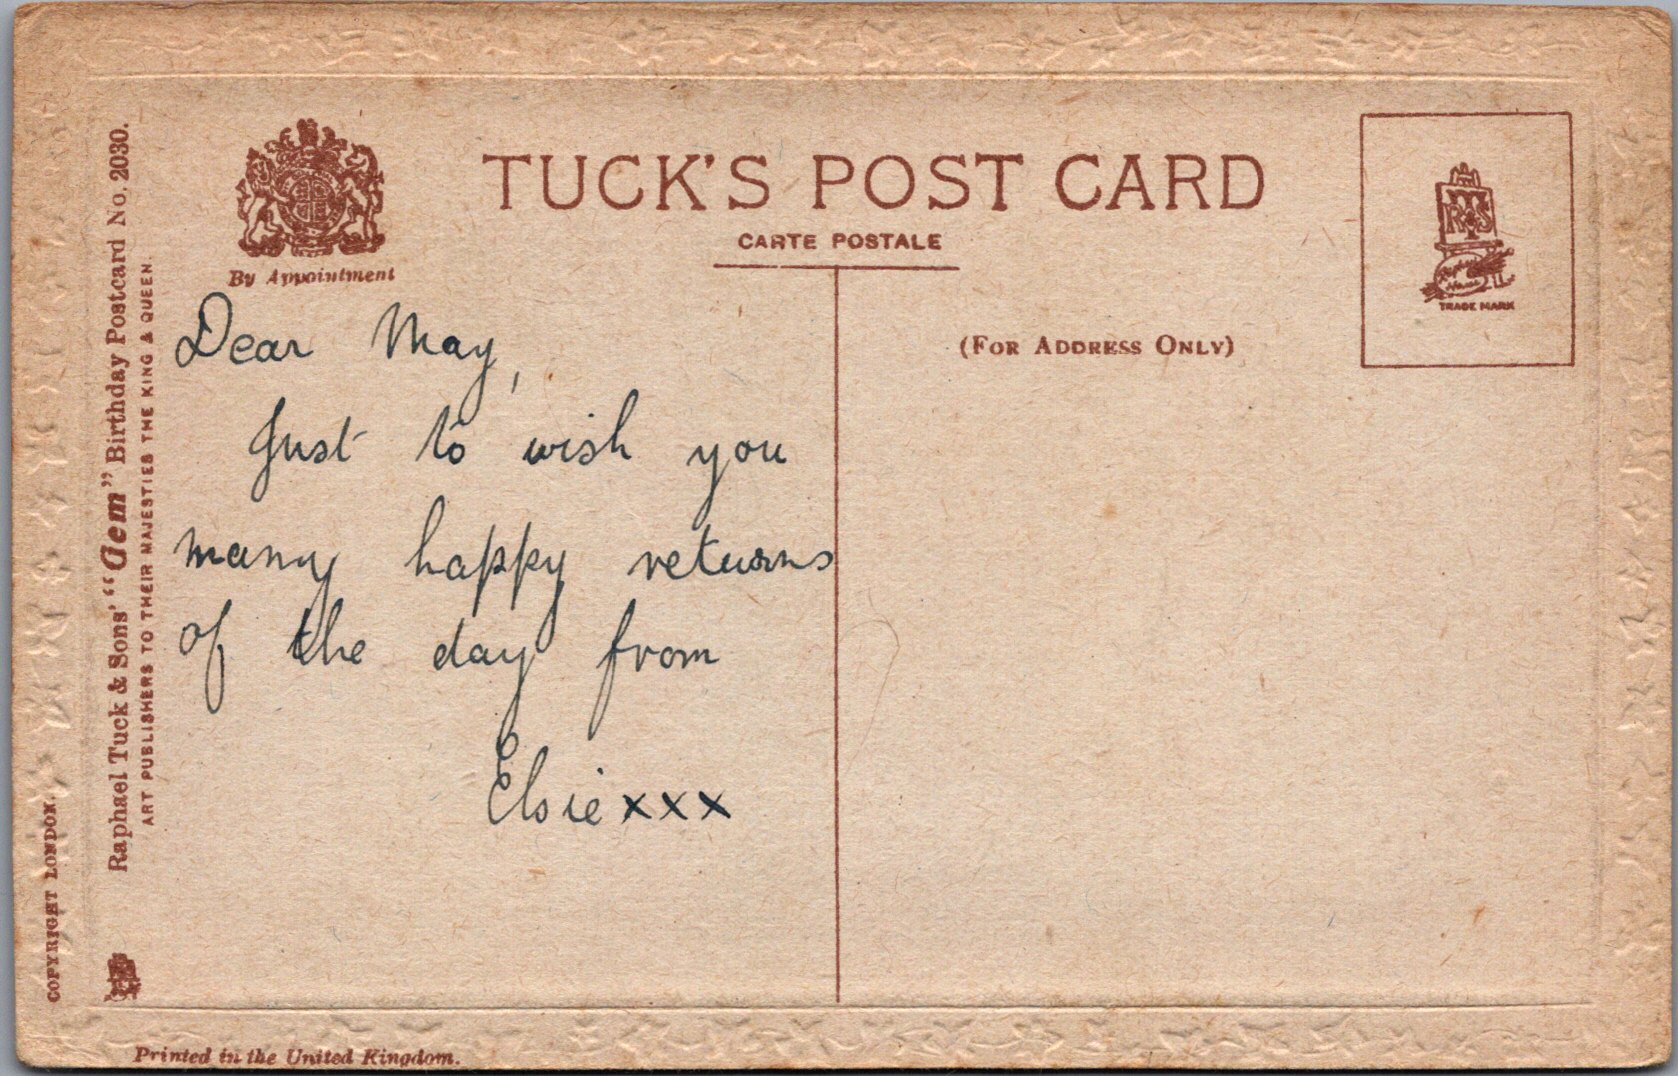 TUCK'S POST CARD
CARTE POSTALE
By Appointment
(FOR ADDRESS ONLY)
RTS
TRADE MARK
Dear May,
Just to wish you
many happy returns
of the day from
Elsie xxx
Raphael Tuck & Sons' "Gem" Birthday Postcard No. 2030.
ART PUBLISHERS TO THEIR MAJESTIES THE KING & QUEEN.
COPYRIGHT LONDON.
Printed in the United Kingdom.